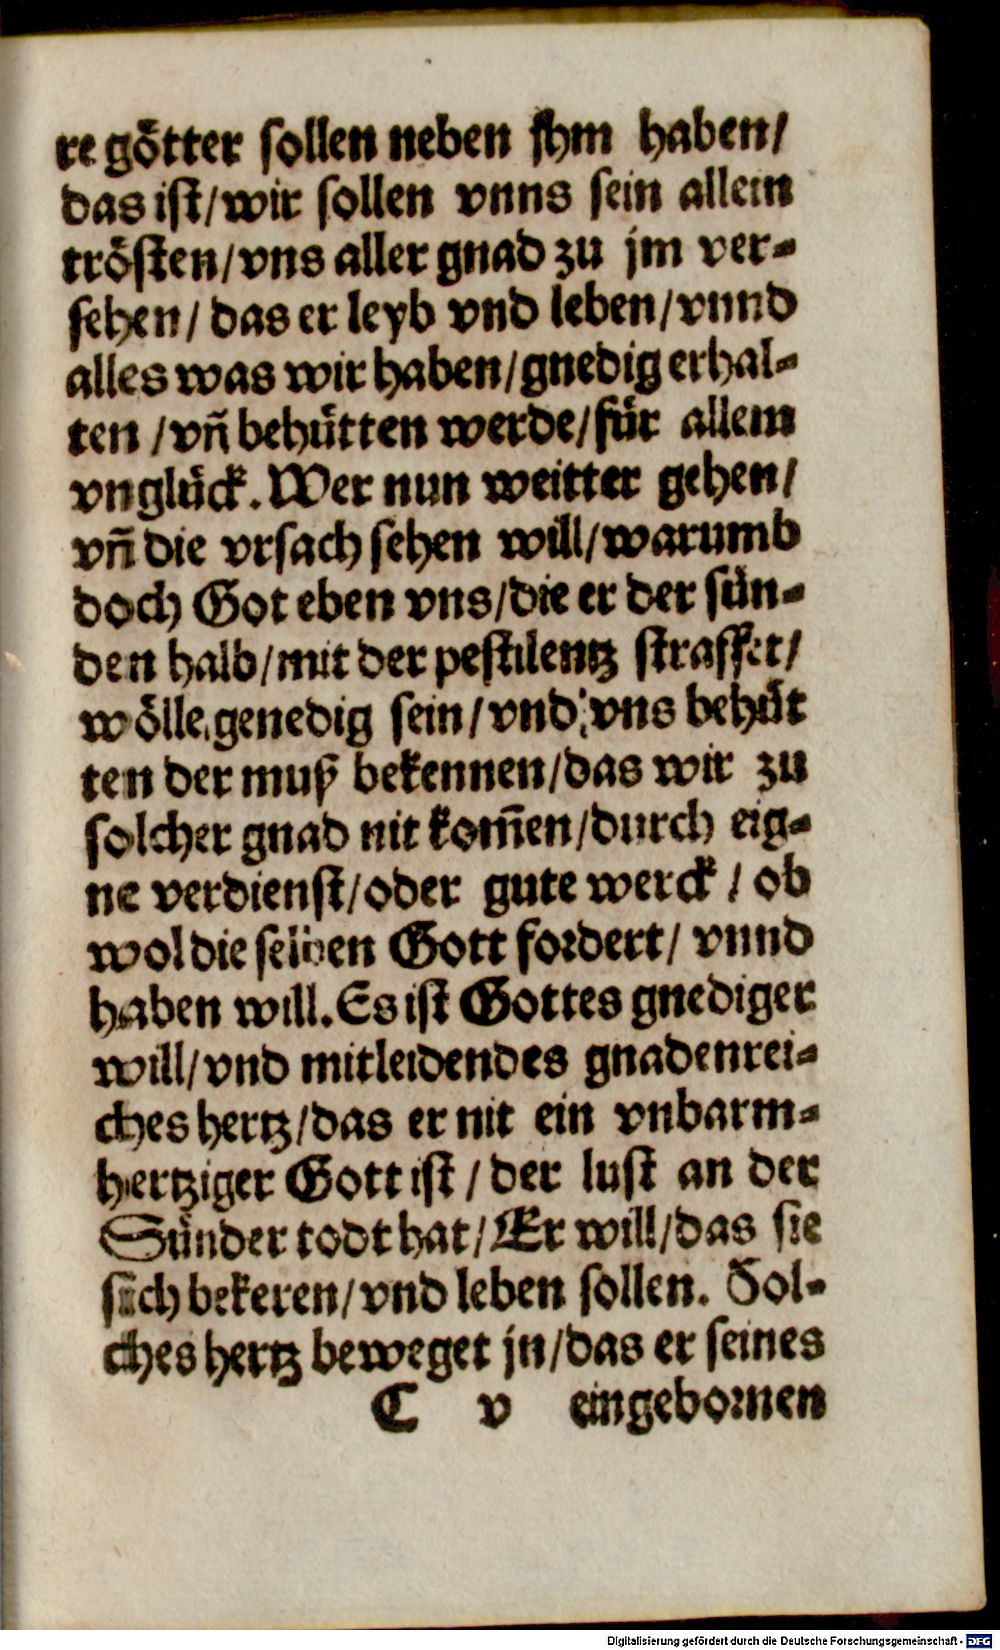 re götter sollen neben jhm haben/
das ist/wir sollen vnns sein allein
trösten/vns aller gnad zu jm ver⸗
sehen/ das er leyb vnd leben/vnnd
alles was wir haben/gnedig erhal⸗
ten /vn̄ behütten werde/für allem
vnglück. Wer nun weitter gehen/
vn̄ die vrsach sehen will/warumb
doch Got eben vns/die er der sün⸗
den halb/mit der pestilentz straffet/
wölle genedig sein/vnd vns behüt
ten der muß bekennen/das wir zu
solcher gnad nit kom̄en/durch eig⸗
ne verdienst/oder gute werck / ob
wol die selben Gott fordert/ vnnd
haben will. Es ist Gottes gnediger
will/vnd mitleidendes gnadenrei⸗
ches hertz/das er nit ein vnbarm⸗
hertziger Gott ist / der lust an der
Sünder todt hat/Er will/das sie
sich bekeren/vnd leben sollen. Sol⸗
ches hertz beweget jn/das er seines
C v eingebornen
Digitalisierung gefördert durch die Deutsche Forschungsgemeinschaft - DFG